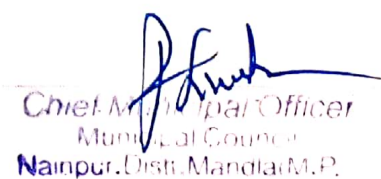 Chief Municipal Officer
Municipal Council
Nainpur.Distt.Mandla(M.P.